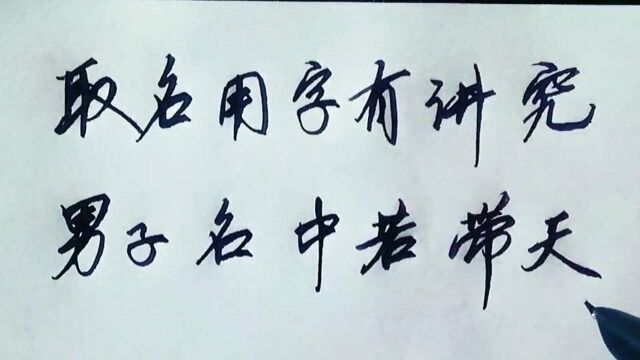 取名用字有讲究
男子名中若带天